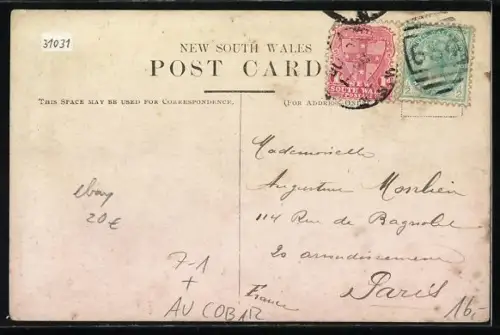 31031
NEW SOUTH WALES
POST CARD
THIS SPACE MAY BE USED FOR CORRESPONDENCE.
(FOR ADDRESS
NEW
SOUTH WALES
Mademoiselle
Augustine
114 Rue de Bagnolet
20 arrondissement
Paris
France
ebay
20€
7-1
+
AU COBAR
16,-